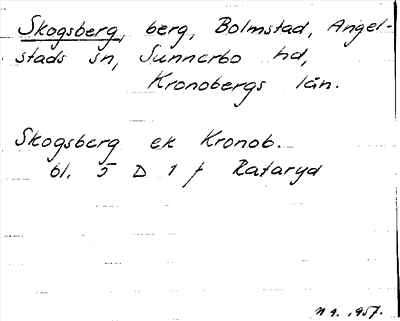 Skogsberg, berg, Bolmstad, Angel-
stads sn, Sunnerbo hd,
Kronobergs län.
Skogsberg ek Kronob.
bl. 5 D 1 f Rataryd
1957.